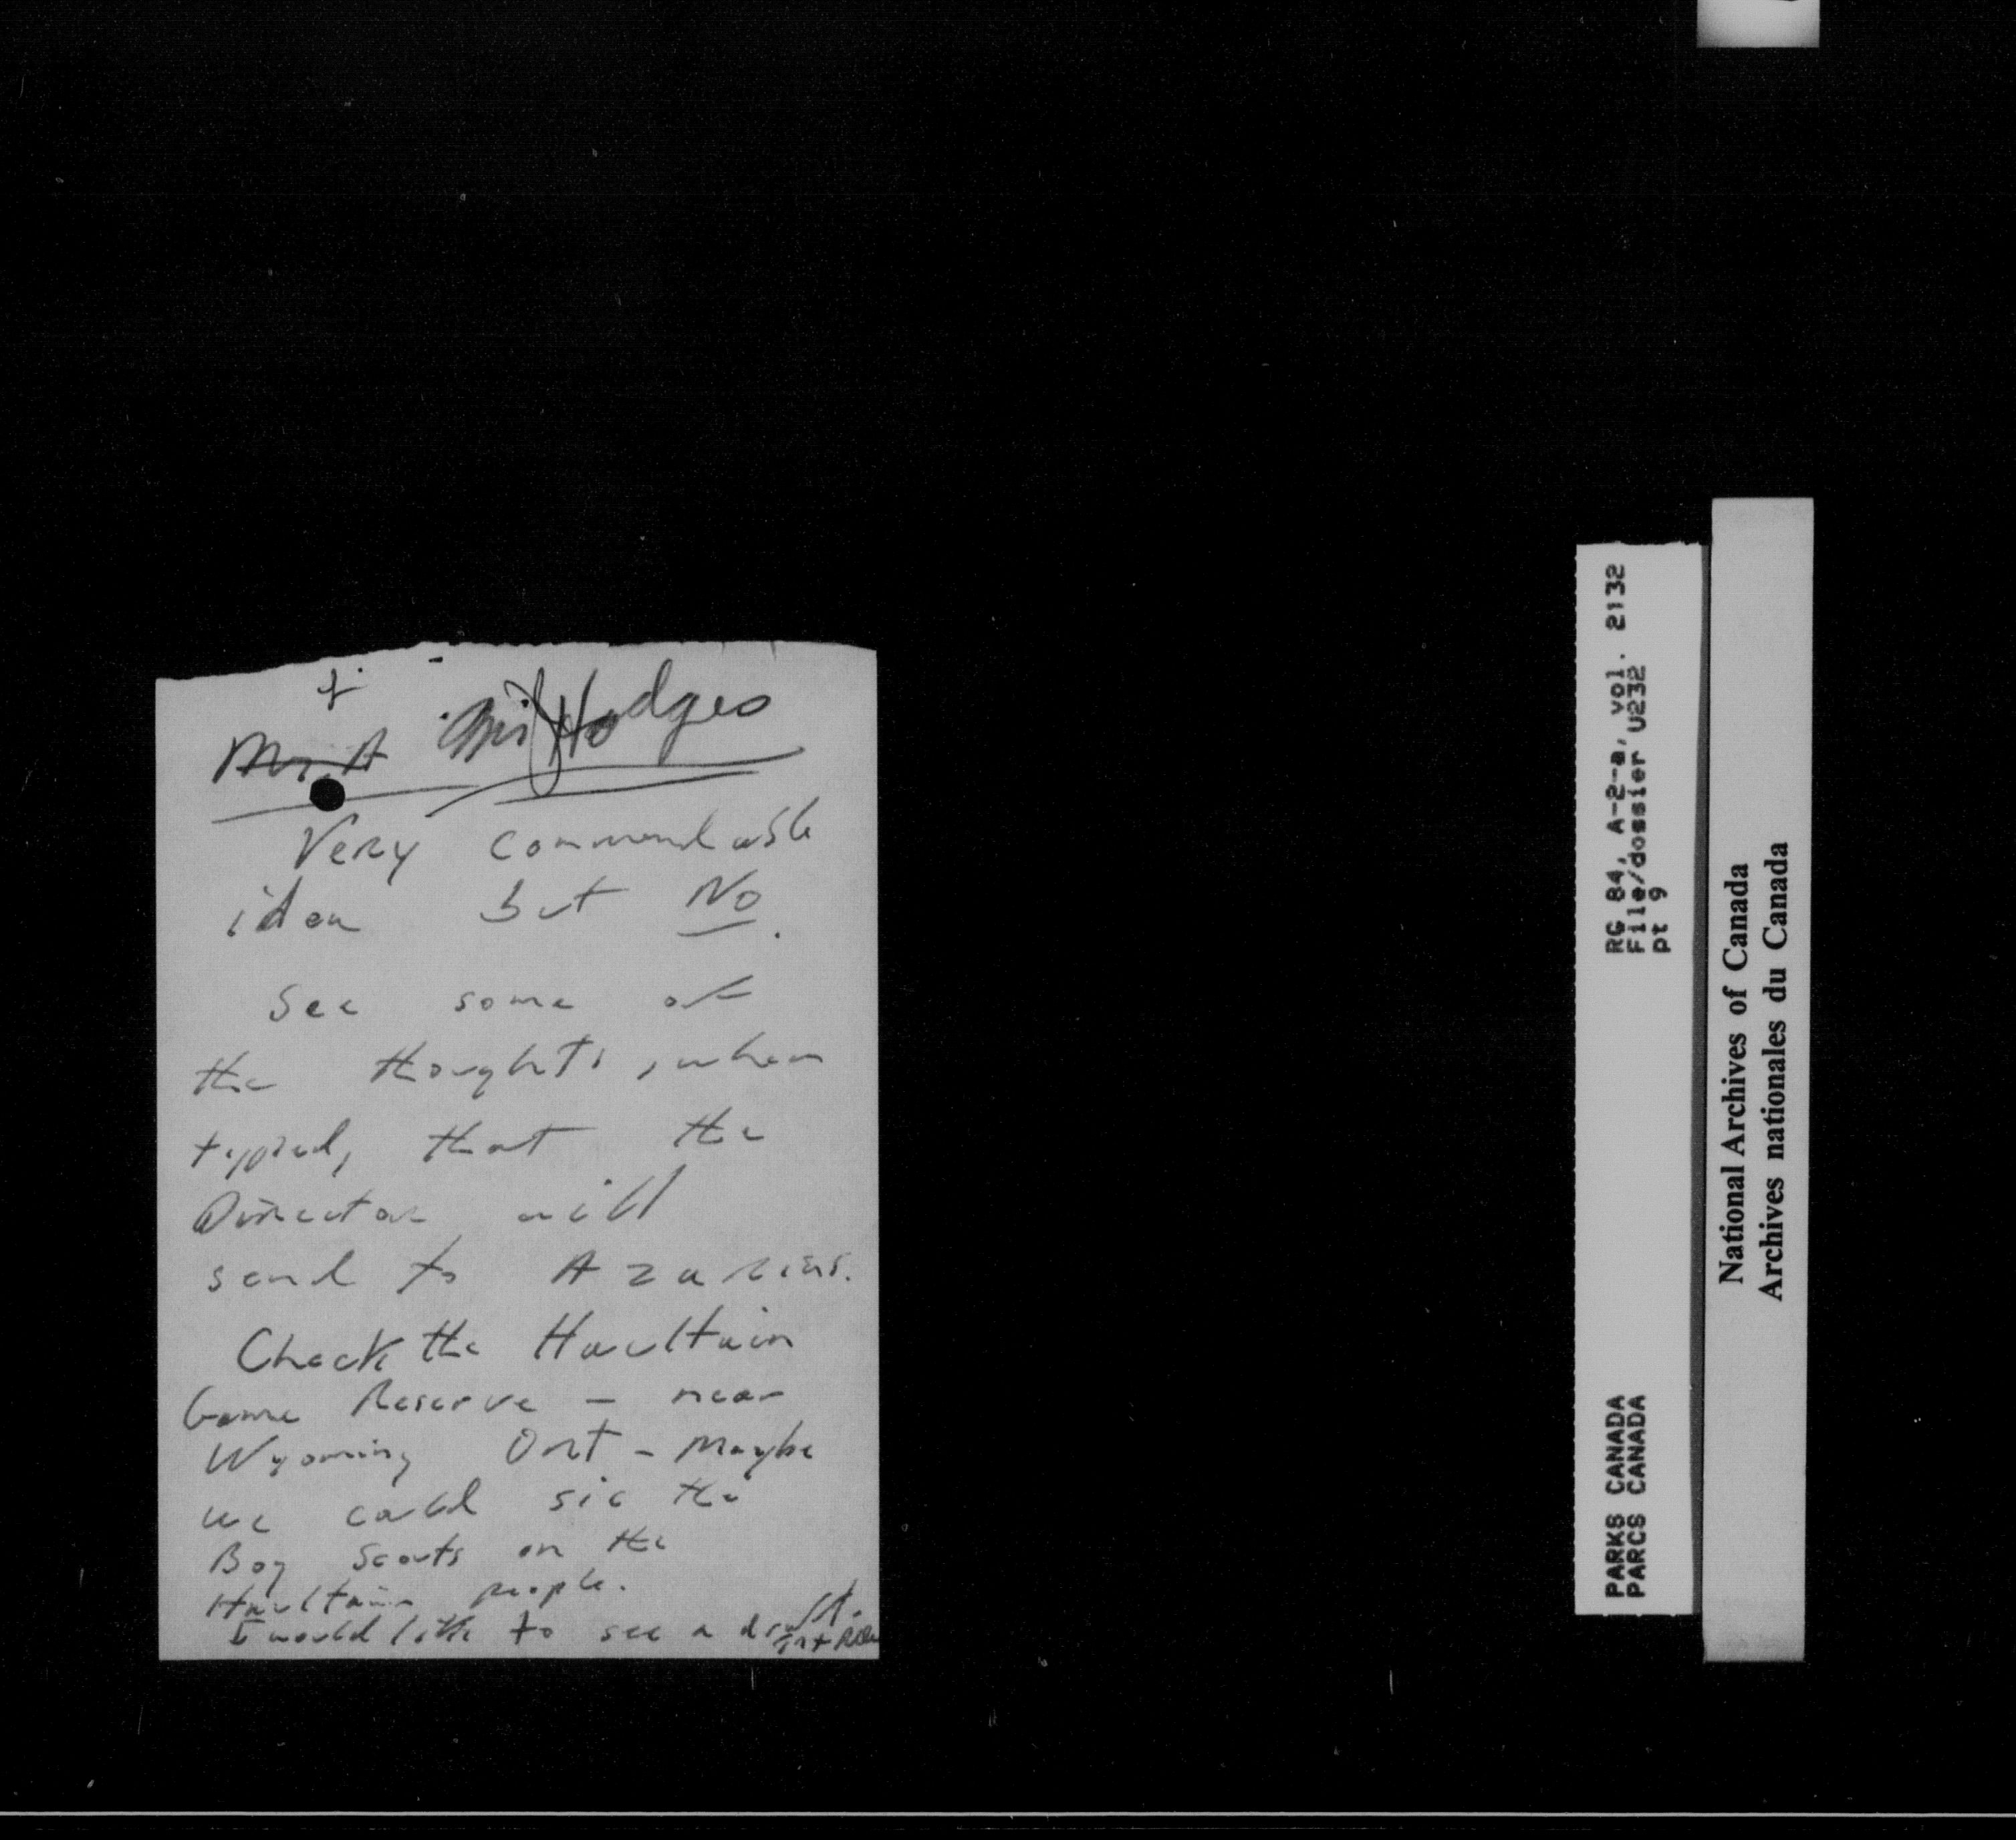 Mr. A Hodges
Very commendable
idea but No.
See some of
the thoughts, when
typed, that the
Director will
send to Azarius.
Check the Haultain
Game Reserve - near
Wyoming Ont - Maybe
we could sic the
Boy Scouts on the
Haultain people.
I would like to see a draft.
RG 84, A-2-a, vol. 2132
File/dossier U232
pt 9
PARKS CANADA
PARCS CANADA
National Archives of Canada
Archives nationales du Canada